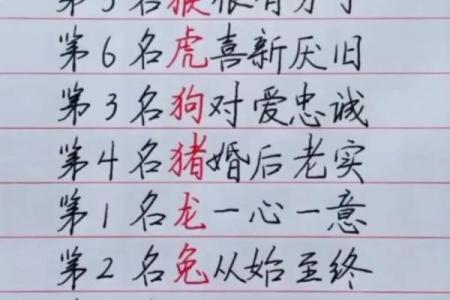 第5名猴很有分寸
第6名虎喜新厌旧
第3名狗对爱忠诚
第4名猪婚后老实
第1名龙一心一意
第2名兔从始至终